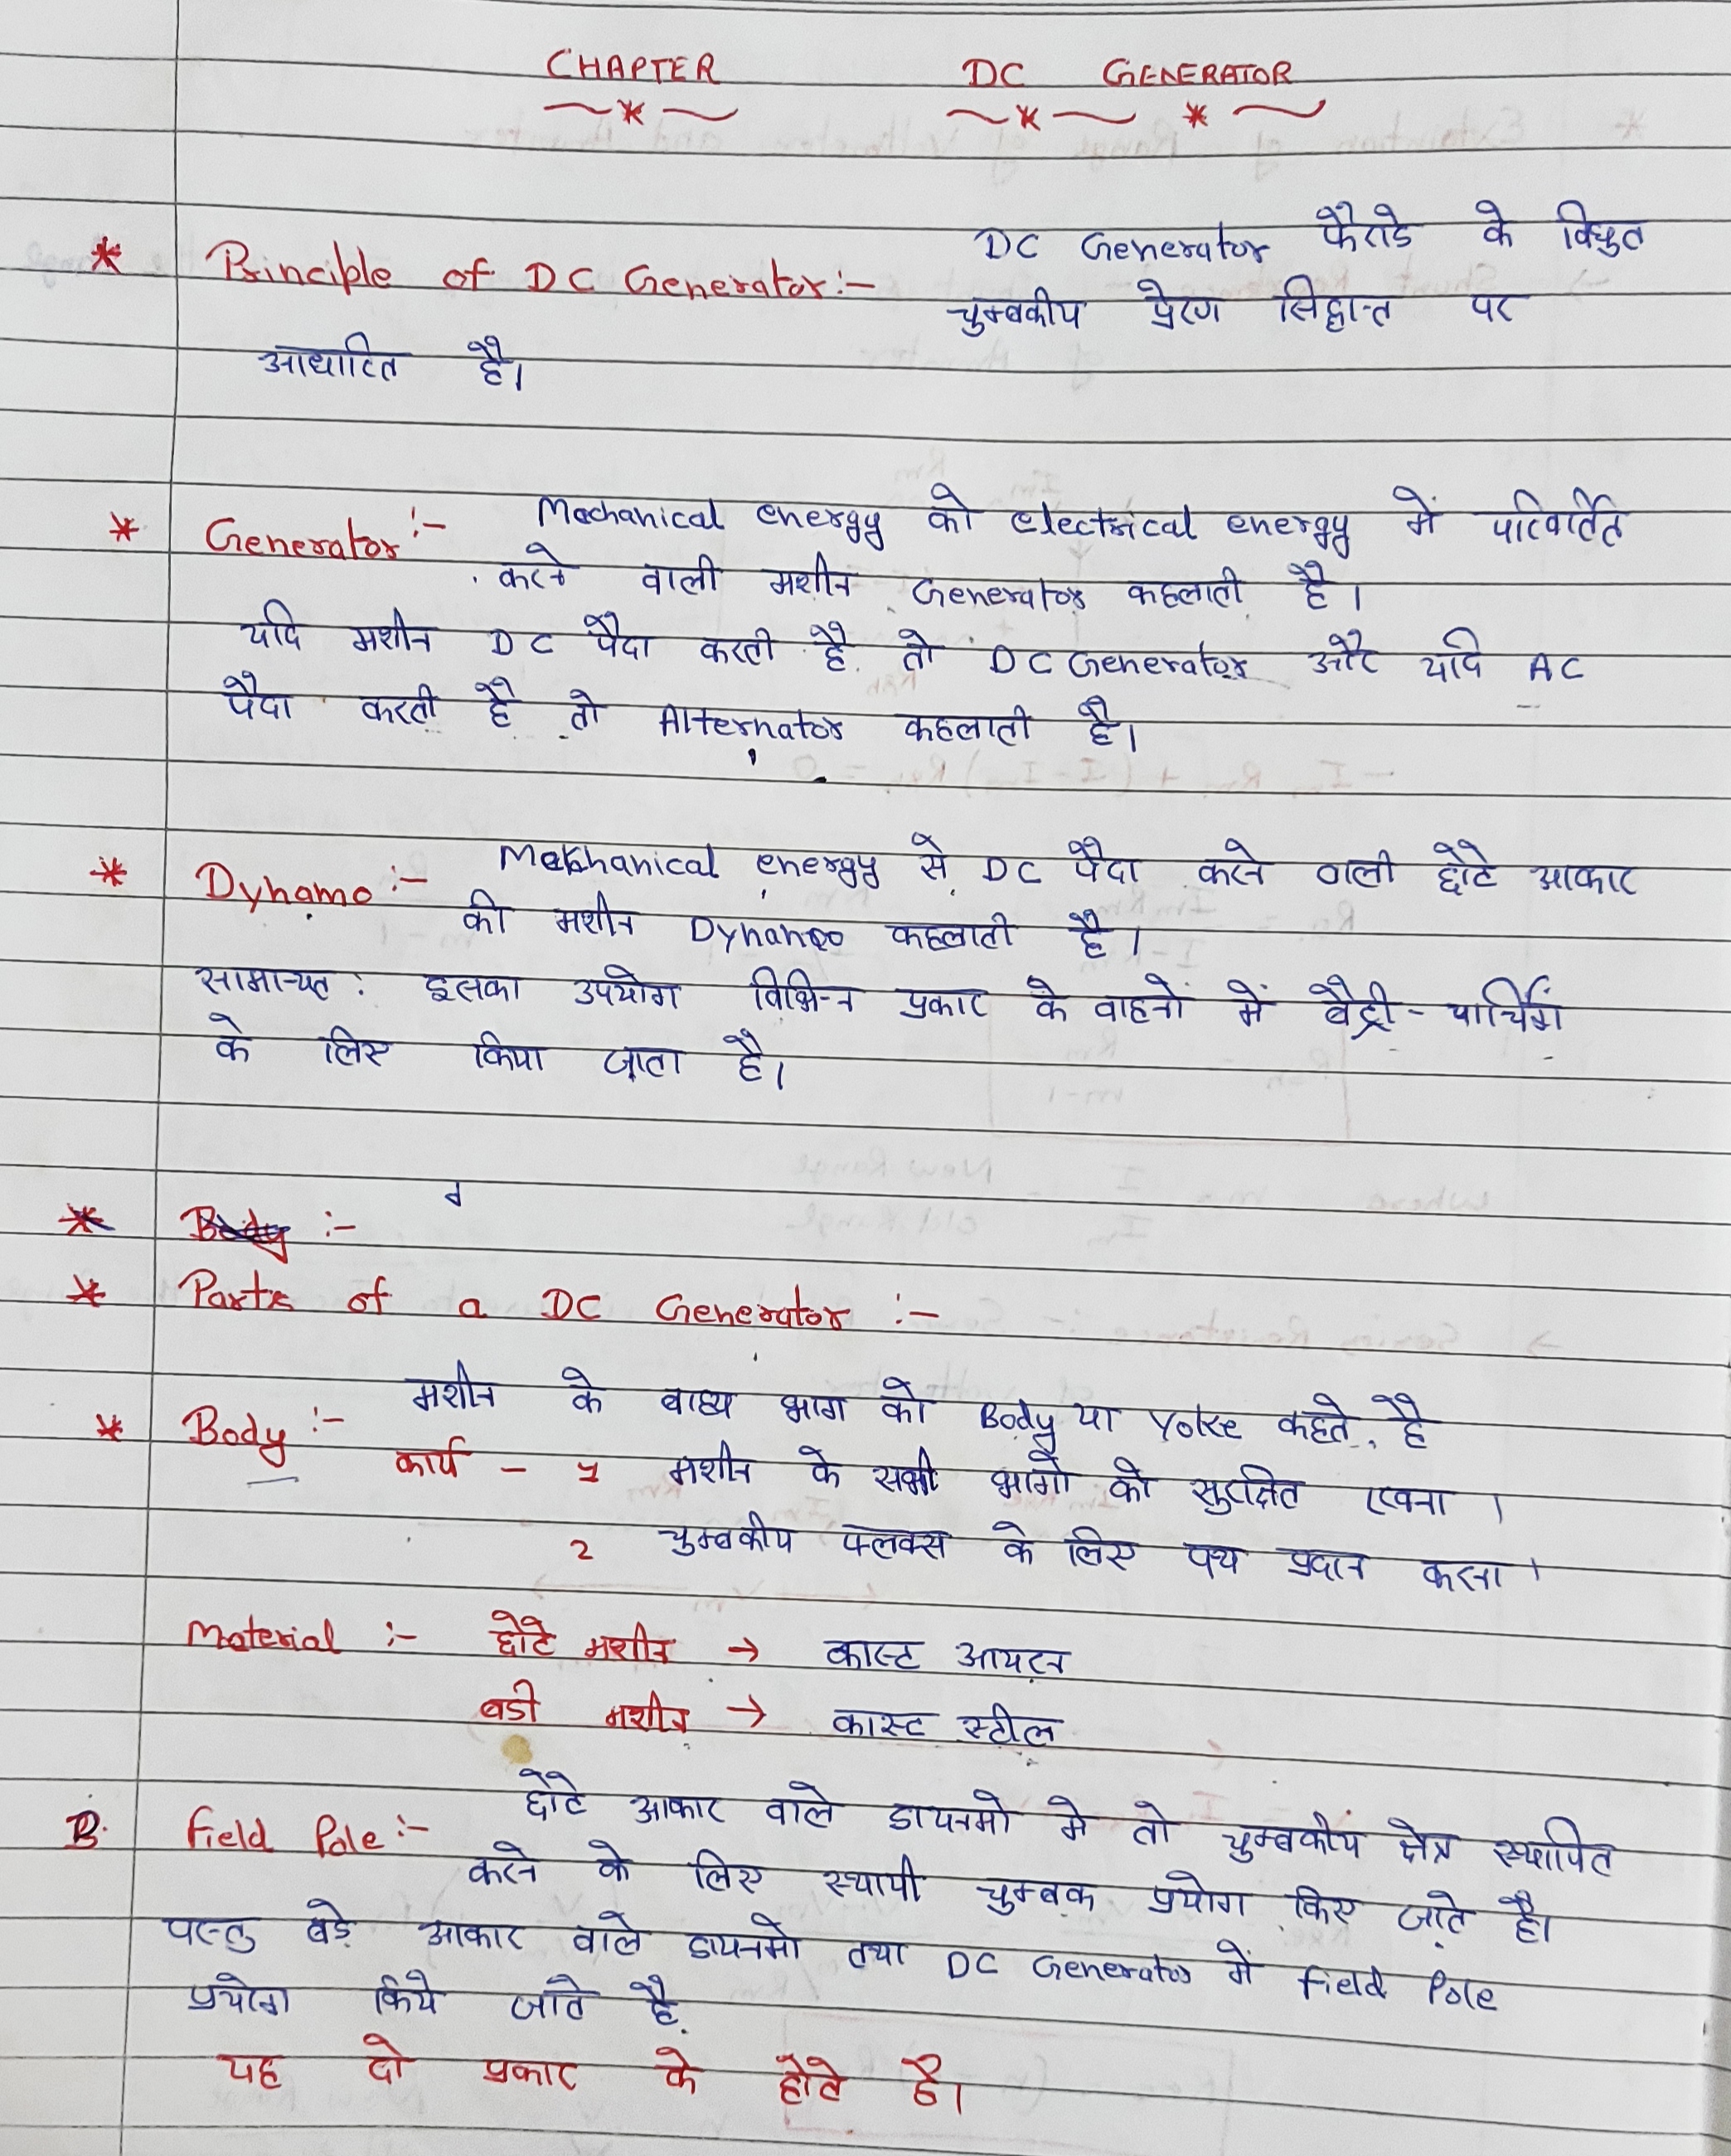 CHAPTER DC GENERATOR
* Principle of DC Generator:- DC Generator फैराडे के विधुत
चुम्बकीय प्रेरण सिद्धान्त पर
आधारित है।
* Generator:- Mechanical energy को electrical energy में परिवर्तित
करने वाली मशीन Generator कहलाती है।
यदि मशीन DC पैदा करती है तो DC Generator और यदि AC
पैदा करती है तो Alternator कहलाती है।
* Dynamo:- Mechanical energy से DC पैदा करने वाली छोटे आकार
की मशीन Dynamo कहलाती है।
सामान्यत: इसका उपयोग विभिन्न प्रकार के वाहनों में बैट्री-चार्चिंग
के लिए किया जाता है।
* Body :-
* Parts of a DC Generator :-
* Body :- मशीन के बाह्य भाग को Body या Yoke कहते है
कार्य - 1 मशीन के सभी भागो को सुरक्षित रखना।
2 चुम्बकीय फ्लक्स के लिए पथ प्रदान करना।
Material :- छोटे मशीन → कास्ट आयरन
बडी मशीन → कास्ट स्टील
B. Field Pole:- छोटे आकार वाले डायनमो मे तो चुम्बकीय क्षेत्र स्थापित
करने के लिए स्थायी चुम्बक प्रयोग किए जाते है।
परन्तु बड़े आकार वाले डायनमो तथा DC Generator में Field Pole
प्रयोग किये जाते है.
यह दो प्रकार के होते है।